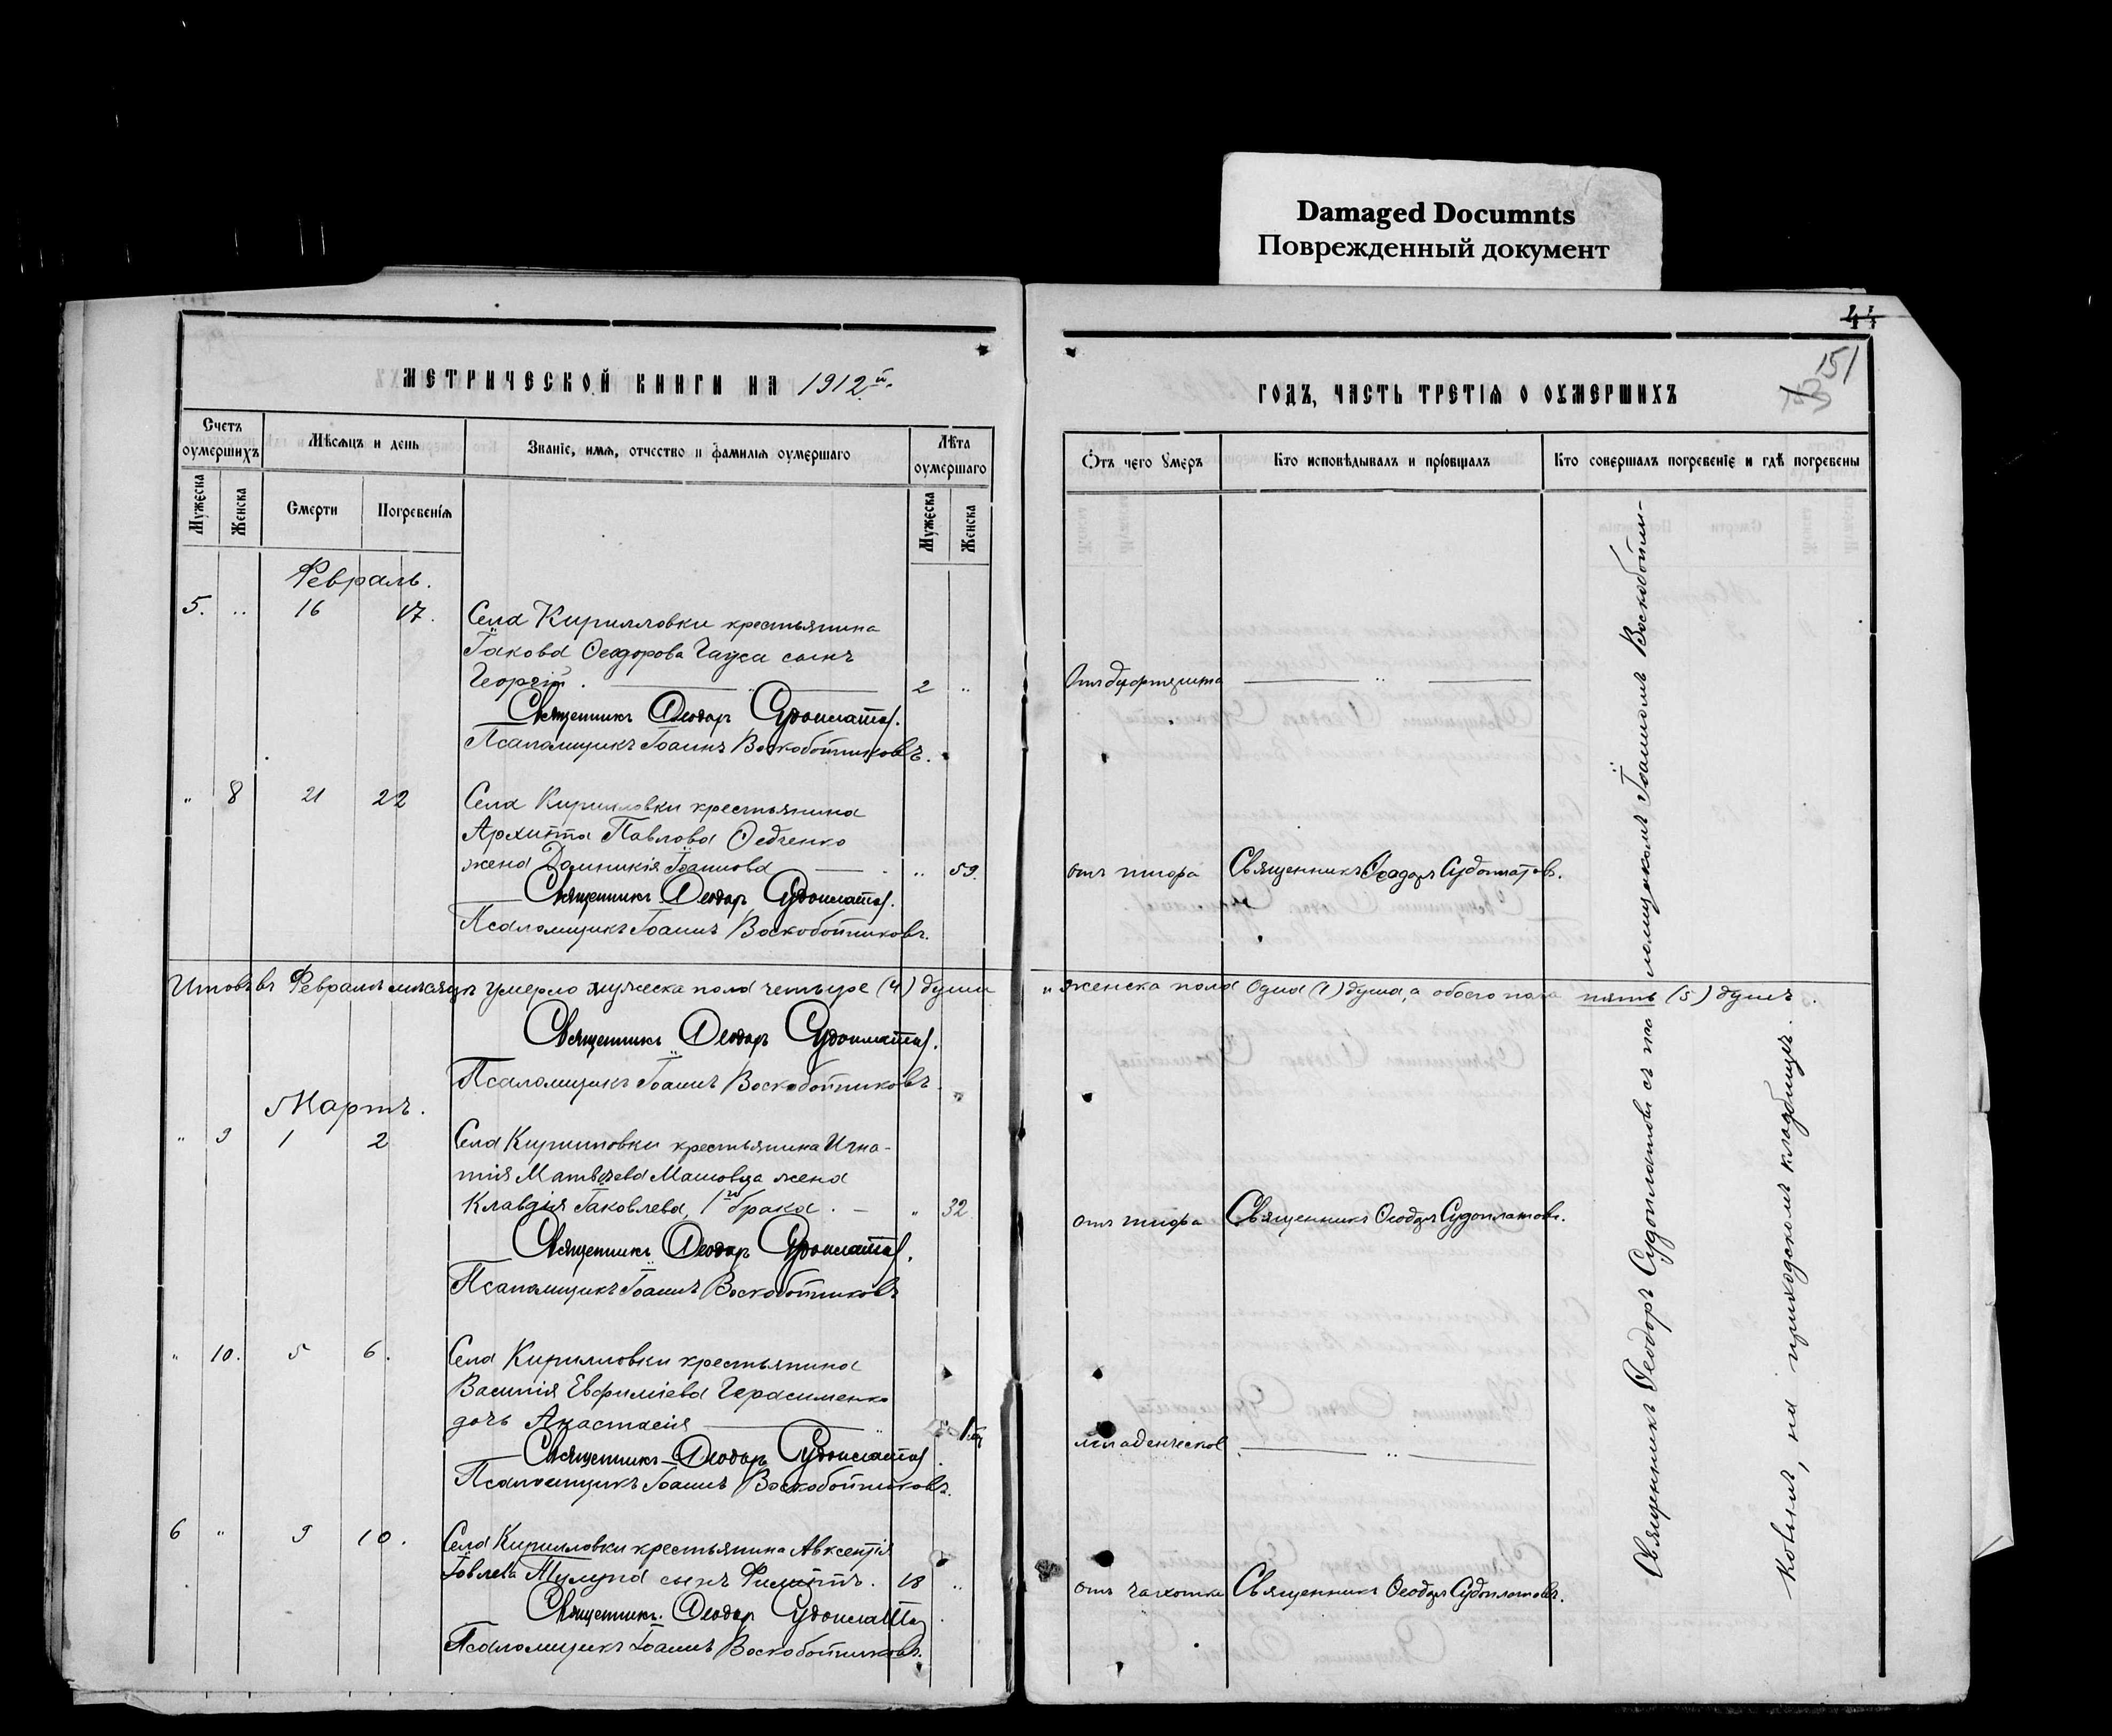 Damaged Documnts
Поврежденный документ
44
151
МЕТРИЧЕСКОЙ КНИГИ НА 1912й.
ГОДЪ, ЧАСТЬ ТРЕТІѦ О ОУМЕРШИХЪ
Счетъ оумершихъ
Мѣсѧцъ и день
Званіе, имѧ, отчество и фамиліѧ оумершаго
Лѣта оумершаго
Мужеска
Женска
Смерти
Погребеніѧ
Мужеска
Женска
Ѿтъ чего умеръ
Кто исповѣдывалъ и пріобщалъ
Кто совершалъ погребеніе и гдѣ погребены
Февраль.
5. „ 16 17. Села Кирилловки крестьянина
Іакова Ѳеодорова Гауса сынъ
Георгій. 2 „ Отъ дифтерита „
Священникъ Ѳеодоръ Судоплатовъ.
Псаломщикъ Іоаннъ Воскобойниковъ.
„ 8 21 22 Села Кирилловки крестьянина
Архипа Павлова Федченко
жена Домникія Іоаннова „ 59. отъ тифа Священникъ Ѳеодоръ Судоплатовъ.
Священникъ Ѳеодоръ Судоплатовъ.
Псаломщикъ Іоаннъ Воскобойниковъ.
Итого въ Февралѣ мѣсяцѣ умерло мужеска пола четыре (4) души „ женска пола одна (1) душа, а обоего пола пять (5) душъ.
Священникъ Ѳеодоръ Судоплатовъ.
Псаломщикъ Іоаннъ Воскобойниковъ.
Мартъ.
„ 9 1 2 Села Кирилловки крестьянина Игна-
тія Матвѣева жена
Клавдія Іаковлева, 1го брака. „ 32 отъ тифа Священникъ Ѳеодоръ Судоплатовъ.
Священникъ Ѳеодоръ Судоплатовъ.
Псаломщикъ Іоаннъ Воскобойниковъ
„ 10. 5 6. Села Кирилловки крестьянина
Василія Евфиміева Герасименко
дочь Анастасія „ младенческой „
Священникъ Ѳеодоръ Судоплатовъ.
Псаломщикъ Іоаннъ Воскобойниковъ.
6 „ 9 10. Села Кирилловки крестьянина Авксентія
Іовлева Тулупа сынъ Филиппъ. 18 „ отъ чахотки Священникъ Ѳеодоръ Судоплатовъ.
Священникъ Ѳеодоръ Судоплатовъ.
Псаломщикъ Іоаннъ Воскобойниковъ.
Священникъ Ѳеодоръ Судоплатовъ съ псаломщикомъ Іоанномъ Воскобойни-
ковымъ, на приходскомъ кладбищѣ.